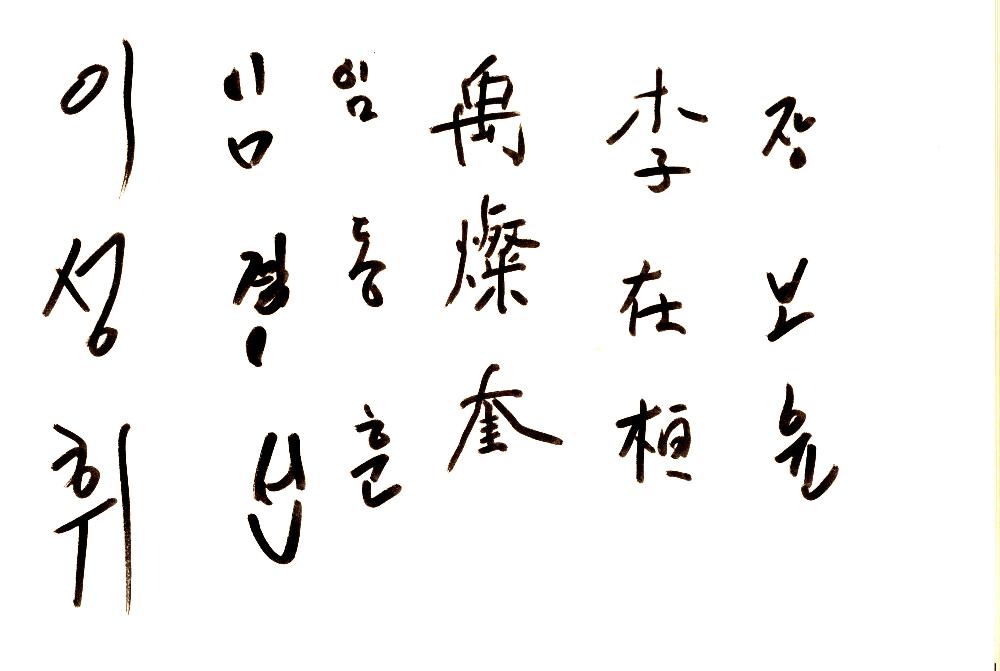 이성휘
임경신
임동훈
禹燦奎
李在桓
장보윤